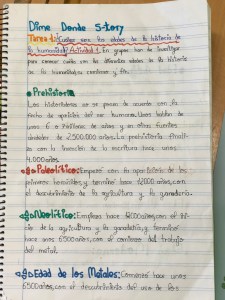 Dime Donde Story
Tarea 1: ¿Cuáles son las edades de la historia de
la humanidad? Actividad 1. En grupos han de investigar
para conocer cuales son las diferentes edades de la historia
de la humanidad, su comienzo y fin.
Prehistoria:
Los historiadores no se ponen de acuerdo con la
fecha de aparición del ser humano. Unos hablan de
unos 6 o 7 millones de años y en otras fuentes
alrededor de 2.500.000 años. La prehistoria finali-
za con la invención de la escritura hace unos
4.000 años.
Paleolítico: Empezó con la aparición de los
primeros homínidos y termina hace 12000 años, con
el descubrimiento de la agricultura y la ganadería.
Neolítico: Empieza hace 12000 años, con el ini-
cio de la agricultura y la ganadería, y termina
hace unos 6500 años, con el comienzo del trabajo
del metal.
Edad de los Metales: Comenzó hace unos
6500 años, con el descubrimiento del uso de los